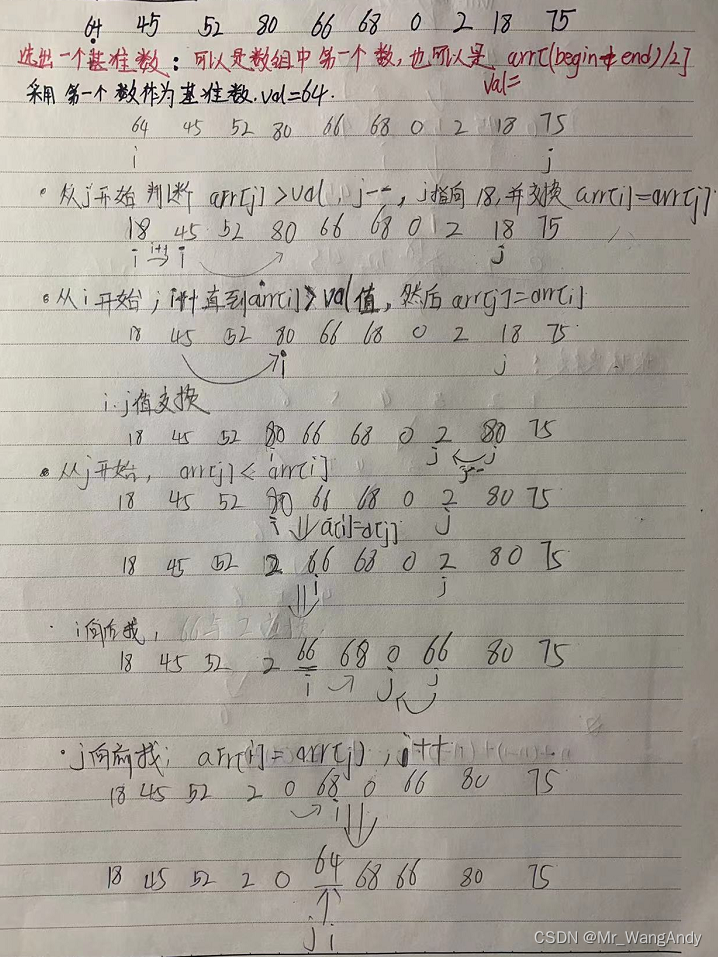 64 45 52 80 66 68 0 2 18 75
选出一个基准数：可以是数组中第一个数，也可以是 arr[(begin+end)/2]
val=
采用第一个数作为基准数.val=64.
64 45 52 80 66 68 0 2 18 75
i j
•从j开始判断 arr[j]>val，j--，j指向18,并交换 arr[i]=arr[j].
18 45 52 80 66 68 0 2 18 75
i i+1 i j
•从i开始，i++直到arr[i]>val值，然后arr[j]=arr[i]
18 45 52 80 66 68 0 2 18 75
i j
i.j值交换
18 45 52 80 66 68 0 2 80 75
i j j-- j
•从j开始，arr[j]<arr[i]
18 45 52 80 66 68 0 2 80 75
i a[i]=a[j] j
18 45 52 2 66 68 0 2 80 75
i j
·i向后找，66与2
18 45 52 2 66 68 0 66 80 75
i j j
·j向前找；arr[i]=arr[j]，i++
18 45 52 2 0 68 0 66 80 75
i
18 45 52 2 0 64 68 66 80 75
j i
CSDN @Mr_WangAndy